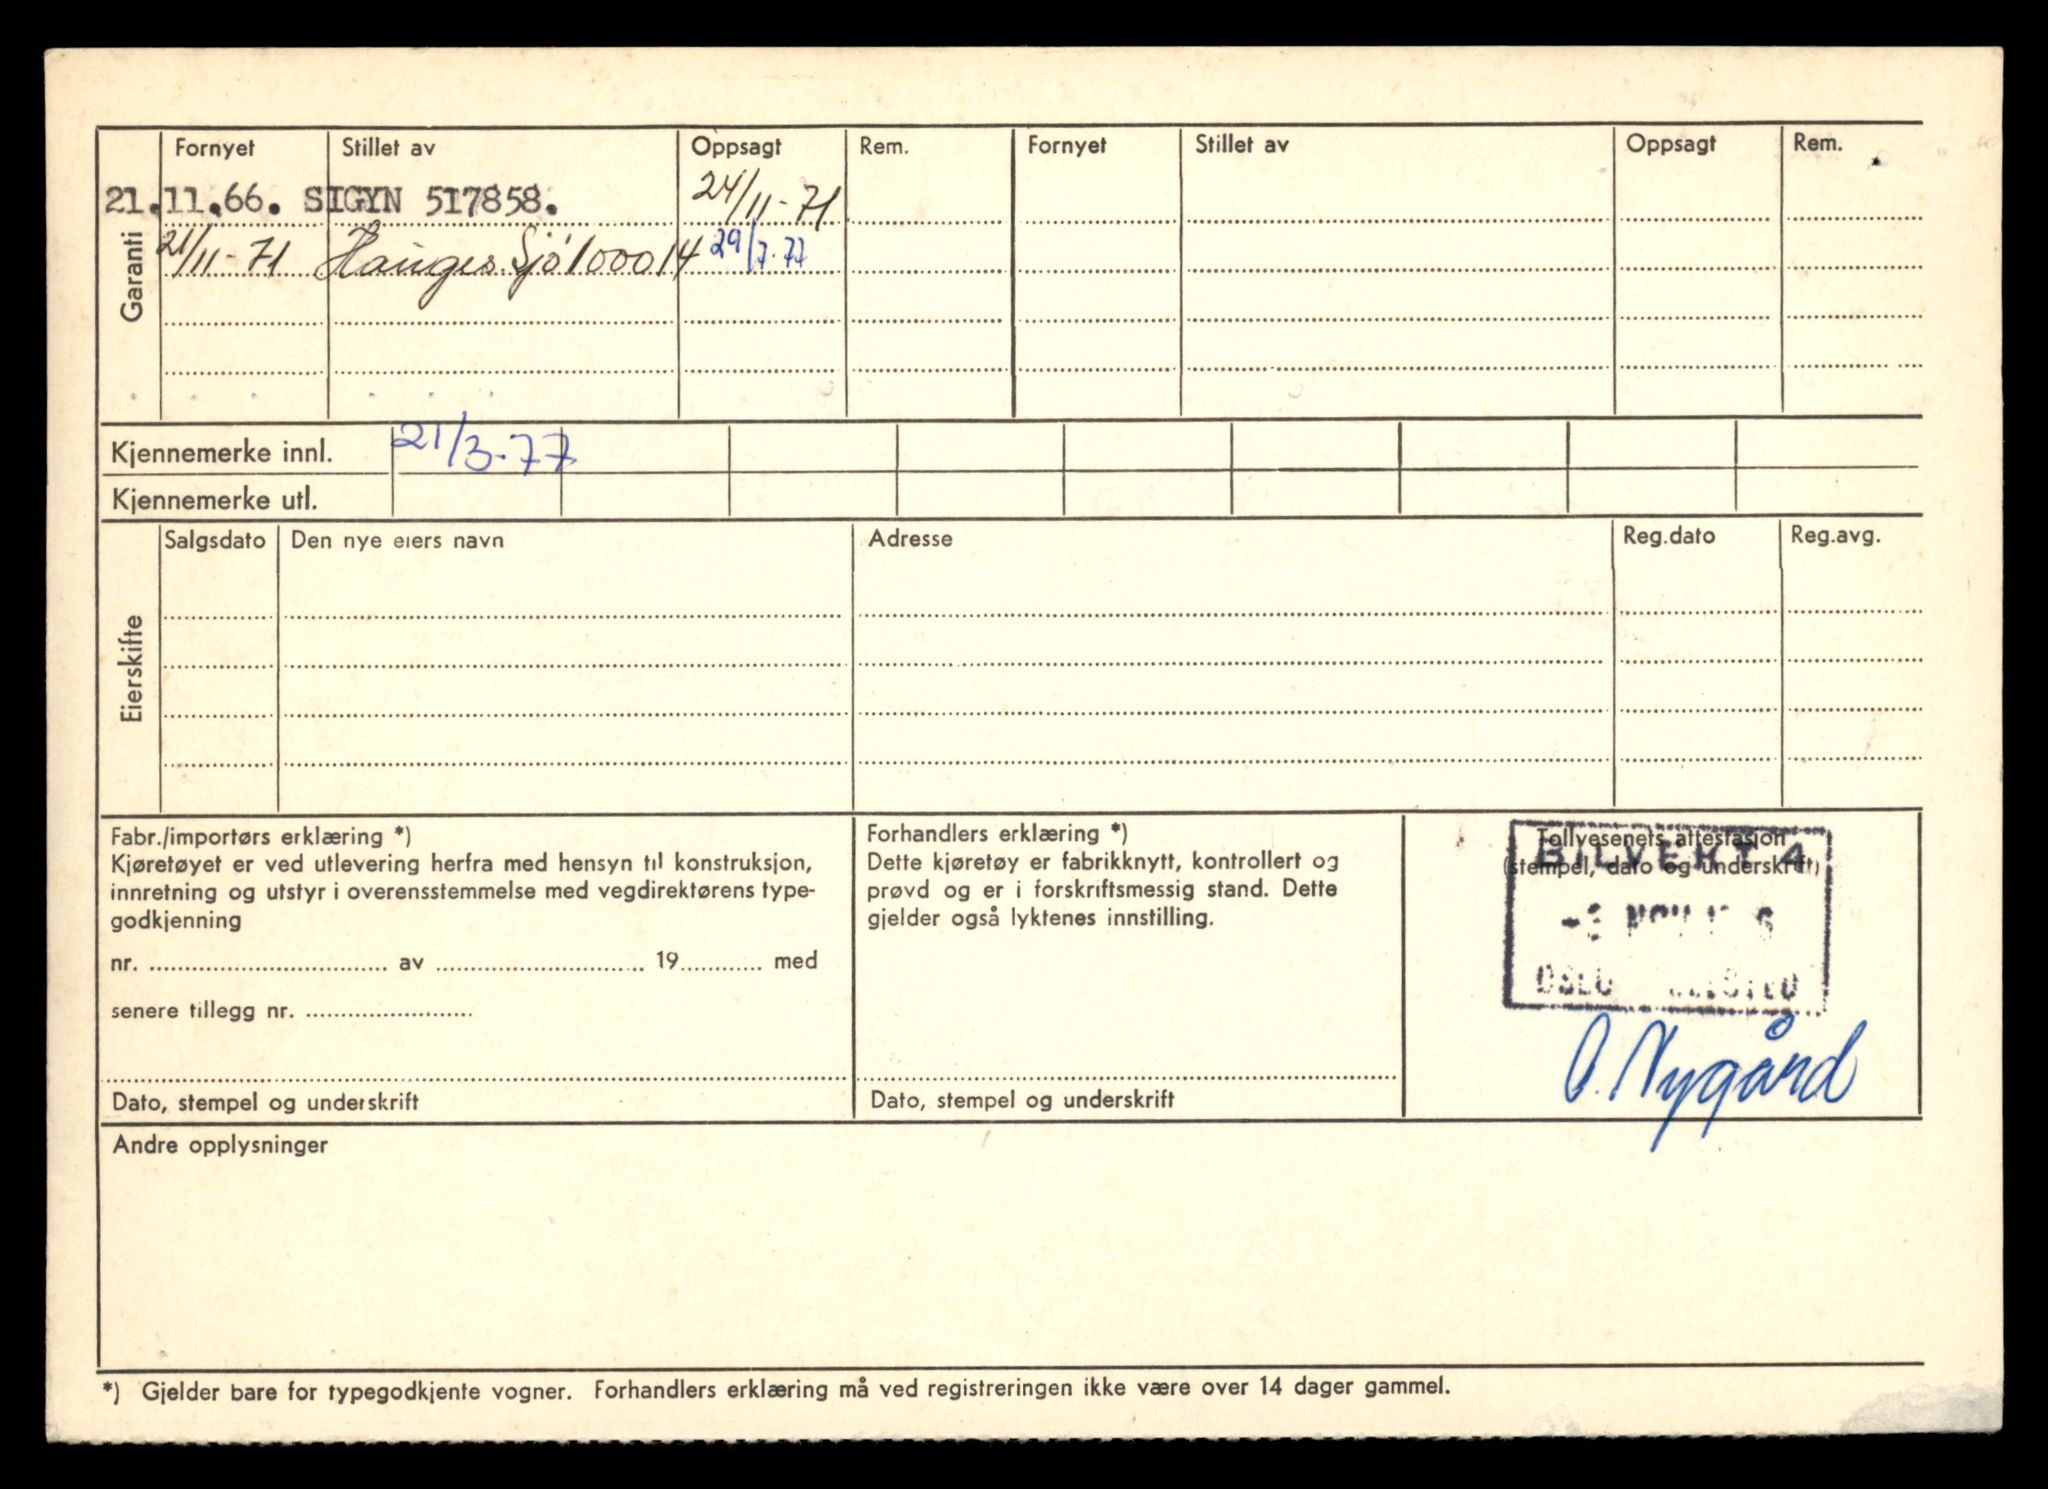 Garanti
Fornyet Stillet av Oppsagt Rem. Fornyet Stillet av Oppsagt Rem.
21.11.66. SIGYN 517858. 24/11-71
21/11-71 Hauges Sjø 100014 29/7.77
Kjennemerke innl. 21/3.77
Kjennemerke utl.
Eierskifte
Salgsdato Den nye eiers navn Adresse Reg.dato Reg.avg.
Fabr./importørs erklæring *)
Kjøretøyet er ved utlevering herfra med hensyn til konstruksjon,
innretning og utstyr i overensstemmelse med vegdirektørens type-
godkjenning
nr. av 19 med
senere tillegg nr.
Dato, stempel og underskrift
Forhandlers erklæring *)
Dette kjøretøy er fabrikknytt, kontrollert og
prøvd og er i forskriftsmessig stand. Dette
gjelder også lyktenes innstilling.
Dato, stempel og underskrift
Tollvesenets attestasjon
(stempel, dato og underskrift)
BILVEKT 4
OSLO
O. Nygård
Andre opplysninger
*) Gjelder bare for typegodkjente vogner. Forhandlers erklæring må ved registreringen ikke være over 14 dager gammel.